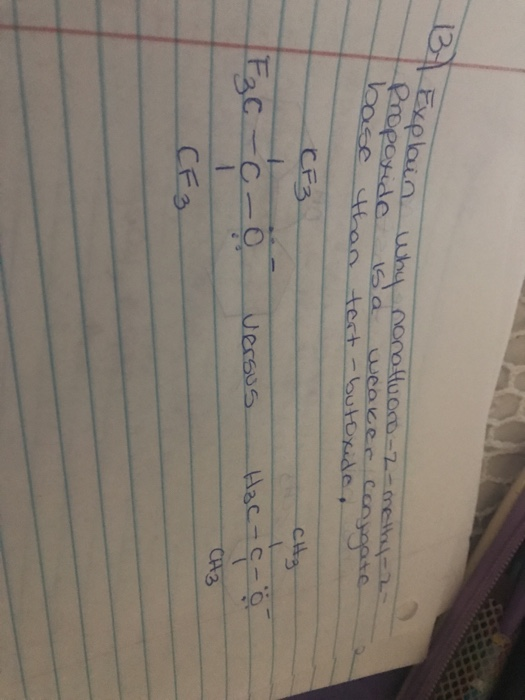 13.) Explain why nonafluoro-2-methy-2-
Propoxide is a weaker conjugate
base than tert-butoxide.
CF3 CH3
F3C-C-O:- versus H3C-C-O:-
CF3 CH3